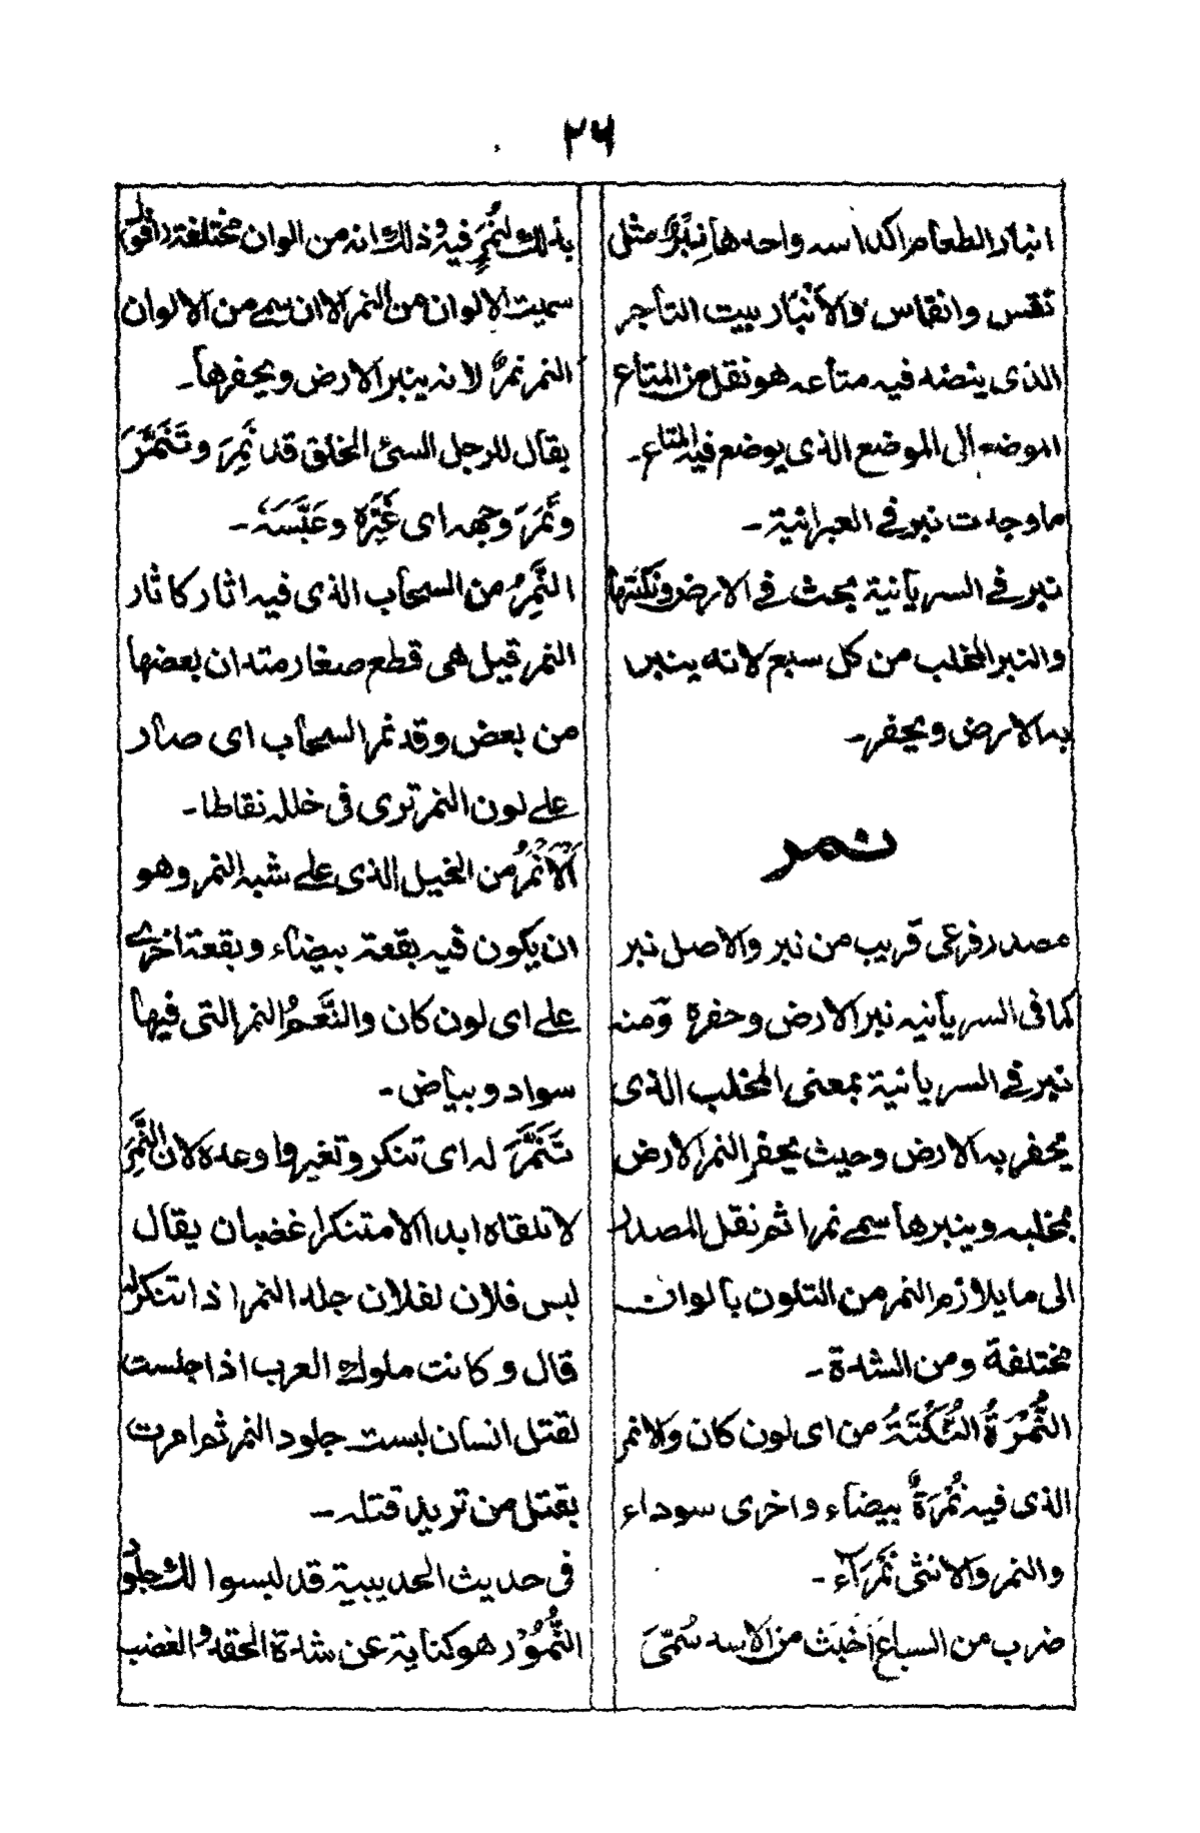 ٢٦
انبار الطعام اكداسه واحدها نِبْرٌ مثل
نقس وانقاس والأنْبَار بيت التاجر
الذى ينضد فيه متاعه هو نقل من المتاع
الموضع الى الموضع الذى يوضع فيه المتاع۔
ما وجدت نبر فى العبرانية۔
نبر فى السريانية بحث فى الارض ونكتها
والنبر المخلب من كل سبع لانه ينبر
به الارض ويحفر۔
نمر
مصدر فرعى قريب من نبر والاصل نبر
كما فى السريانيه نبر الارض وحفره ومنه
نبر فى السريانية بمعنى المخلب الذى
يحفر به الارض وحيث يحفر النمر الارض
بمخلبه وينبرها سمے نمرا ثم نقل المصدر
الى ما يلازم النمر من التلون بالوان
مختلفة ومن الشدة۔
النُّمْرَةُ النُّكْتَةُ من اى لون كان والانمر
الذى فيه نُمْرَةٌ بيضاء واخرى سوداء
والنمر والانثى نَمْرَآء۔
ضرب من السباع أخْبَث من الاسد سُمّىَ
بذلك لنُمَرٍ فيه وذلك انه من الوان مختلفة
سميت الالوان من النمر لا ان سمے من الالوان
النمر نمرٌ لانه ينبر الارض ويحفرها۔
يقال للرجل السئ الخلق قد نَمِرَ وتَنَمَّرَ
ونَمَّرَ وجهه اى غَيَّرَه وعَبَّسَهُ۔
النَّمِرُ من السحاب الذى فيه اثار كاثار
النمر قيل هى قطع صغار متدان بعضها
من بعض وقد نمر السحاب اى صار
علے لون النمر ترى فى خلله نقاطا۔
اَلْاَنْمَرُ من الخيل الذى علے شبه النمر وهو
ان يكون فيه بقعة بيضاء وبقعة اخرے
علے اى لون كان والنَّعَمُ النمر التى فيها
سواد وبياض۔
تَنَمَّرَ له اى تنكر وتغير واوعده لان النَّمِرَ
لا تلقاه ابدا الا متنكرا غضبان يقال
لبس فلان لفلان جلد النمر اذا تنكر له
قال وكانت ملوك العرب اذا جلست
لقتل انسان لبست جلود النمر ثم امرت
بقتل من تريد قتله۔
فى حديث الحديبية قد لبسوا لك جلود
النُّمُوْر هو كناية عن شدة الحقد والغضب